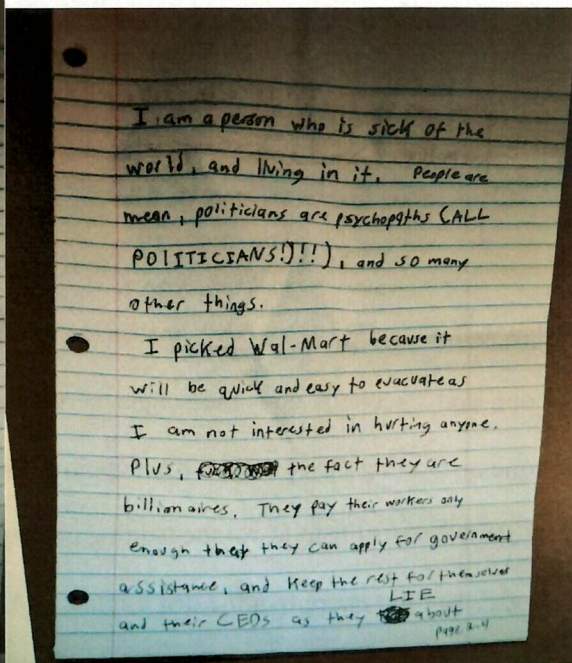 I am a person who is sick of the
world, and living in it. People are
mean, politicians are psychopaths (ALL
POLITICIANS!)!!), and so many
other things.
I picked Wal-Mart because it
will be quick and easy to evacuate as
I am not interested in hurting anyone.
Plus, the fact they are
billionaires. They pay their workers only
enough that they can apply for government
assistance, and keep the rest for themselves
LIE
and their CEOs as they about
Page 2.4